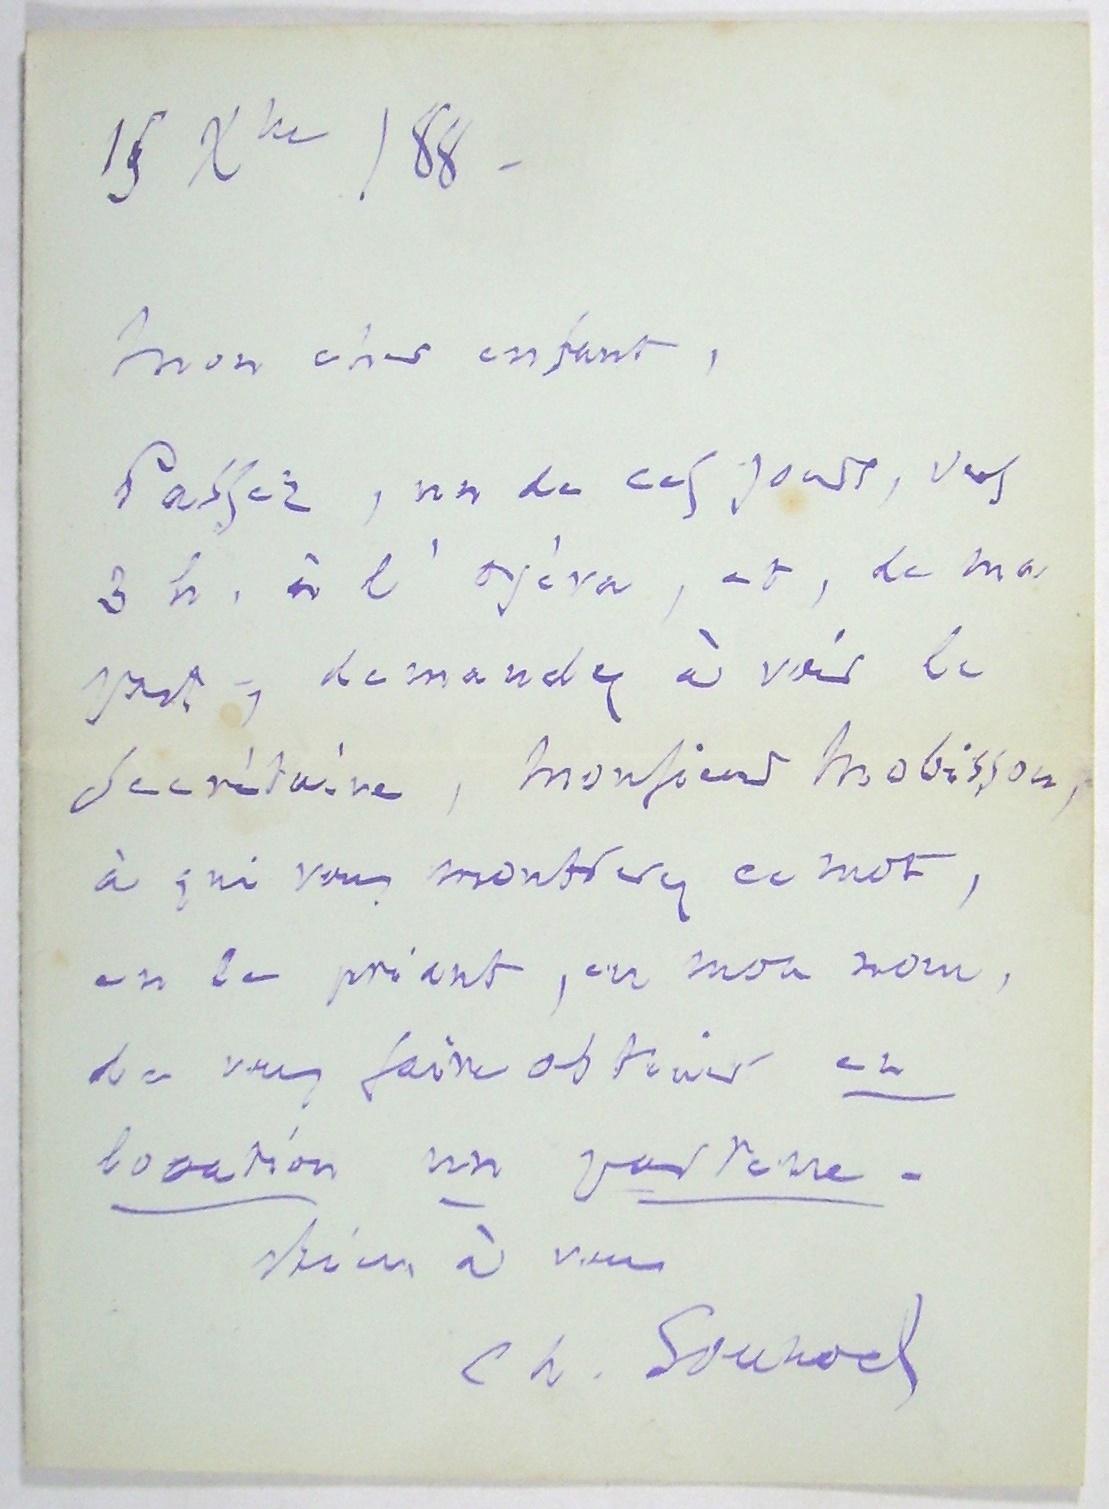 15 Xbre / 88 -
Mon cher enfant,
Passez, un de ces jours, vers
3 h. à l'opéra, et, de ma
part -, demandez à voir le
secrétaire, Monsieur Mobisson,
à qui vous montrerez ce mot,
en le priant, en mon nom,
de vous faire obtenir en
location un parterre -
bien à vous
Ch. Gounod